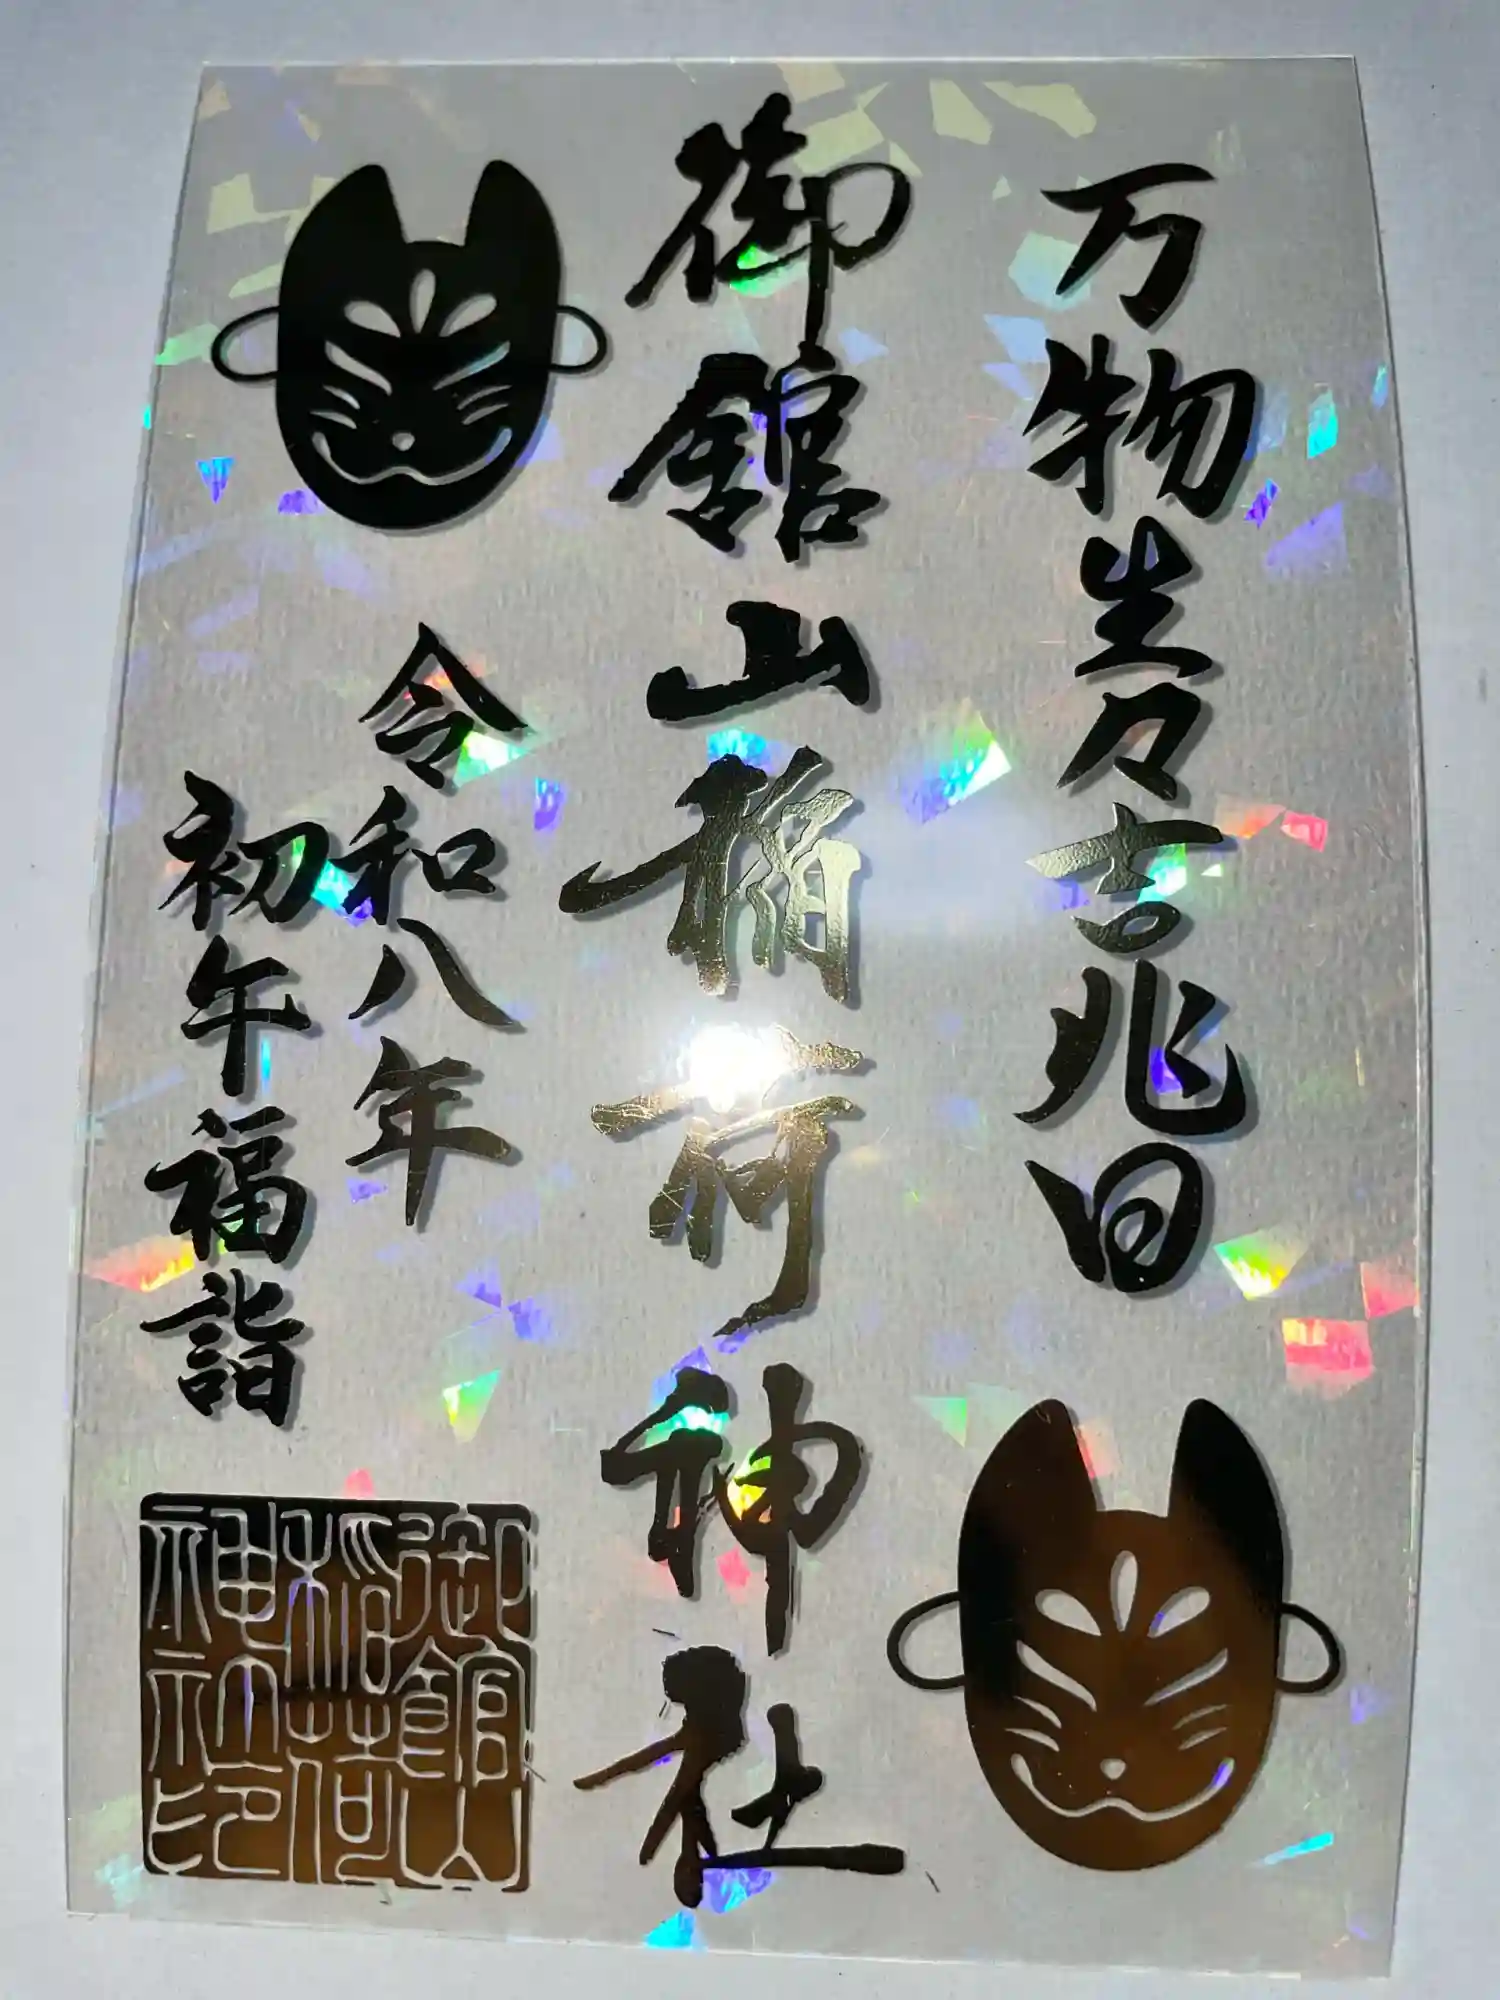 万物生々吉兆日
御館山稲荷神社
令和八年
初午福詣
御館山稲荷神社印